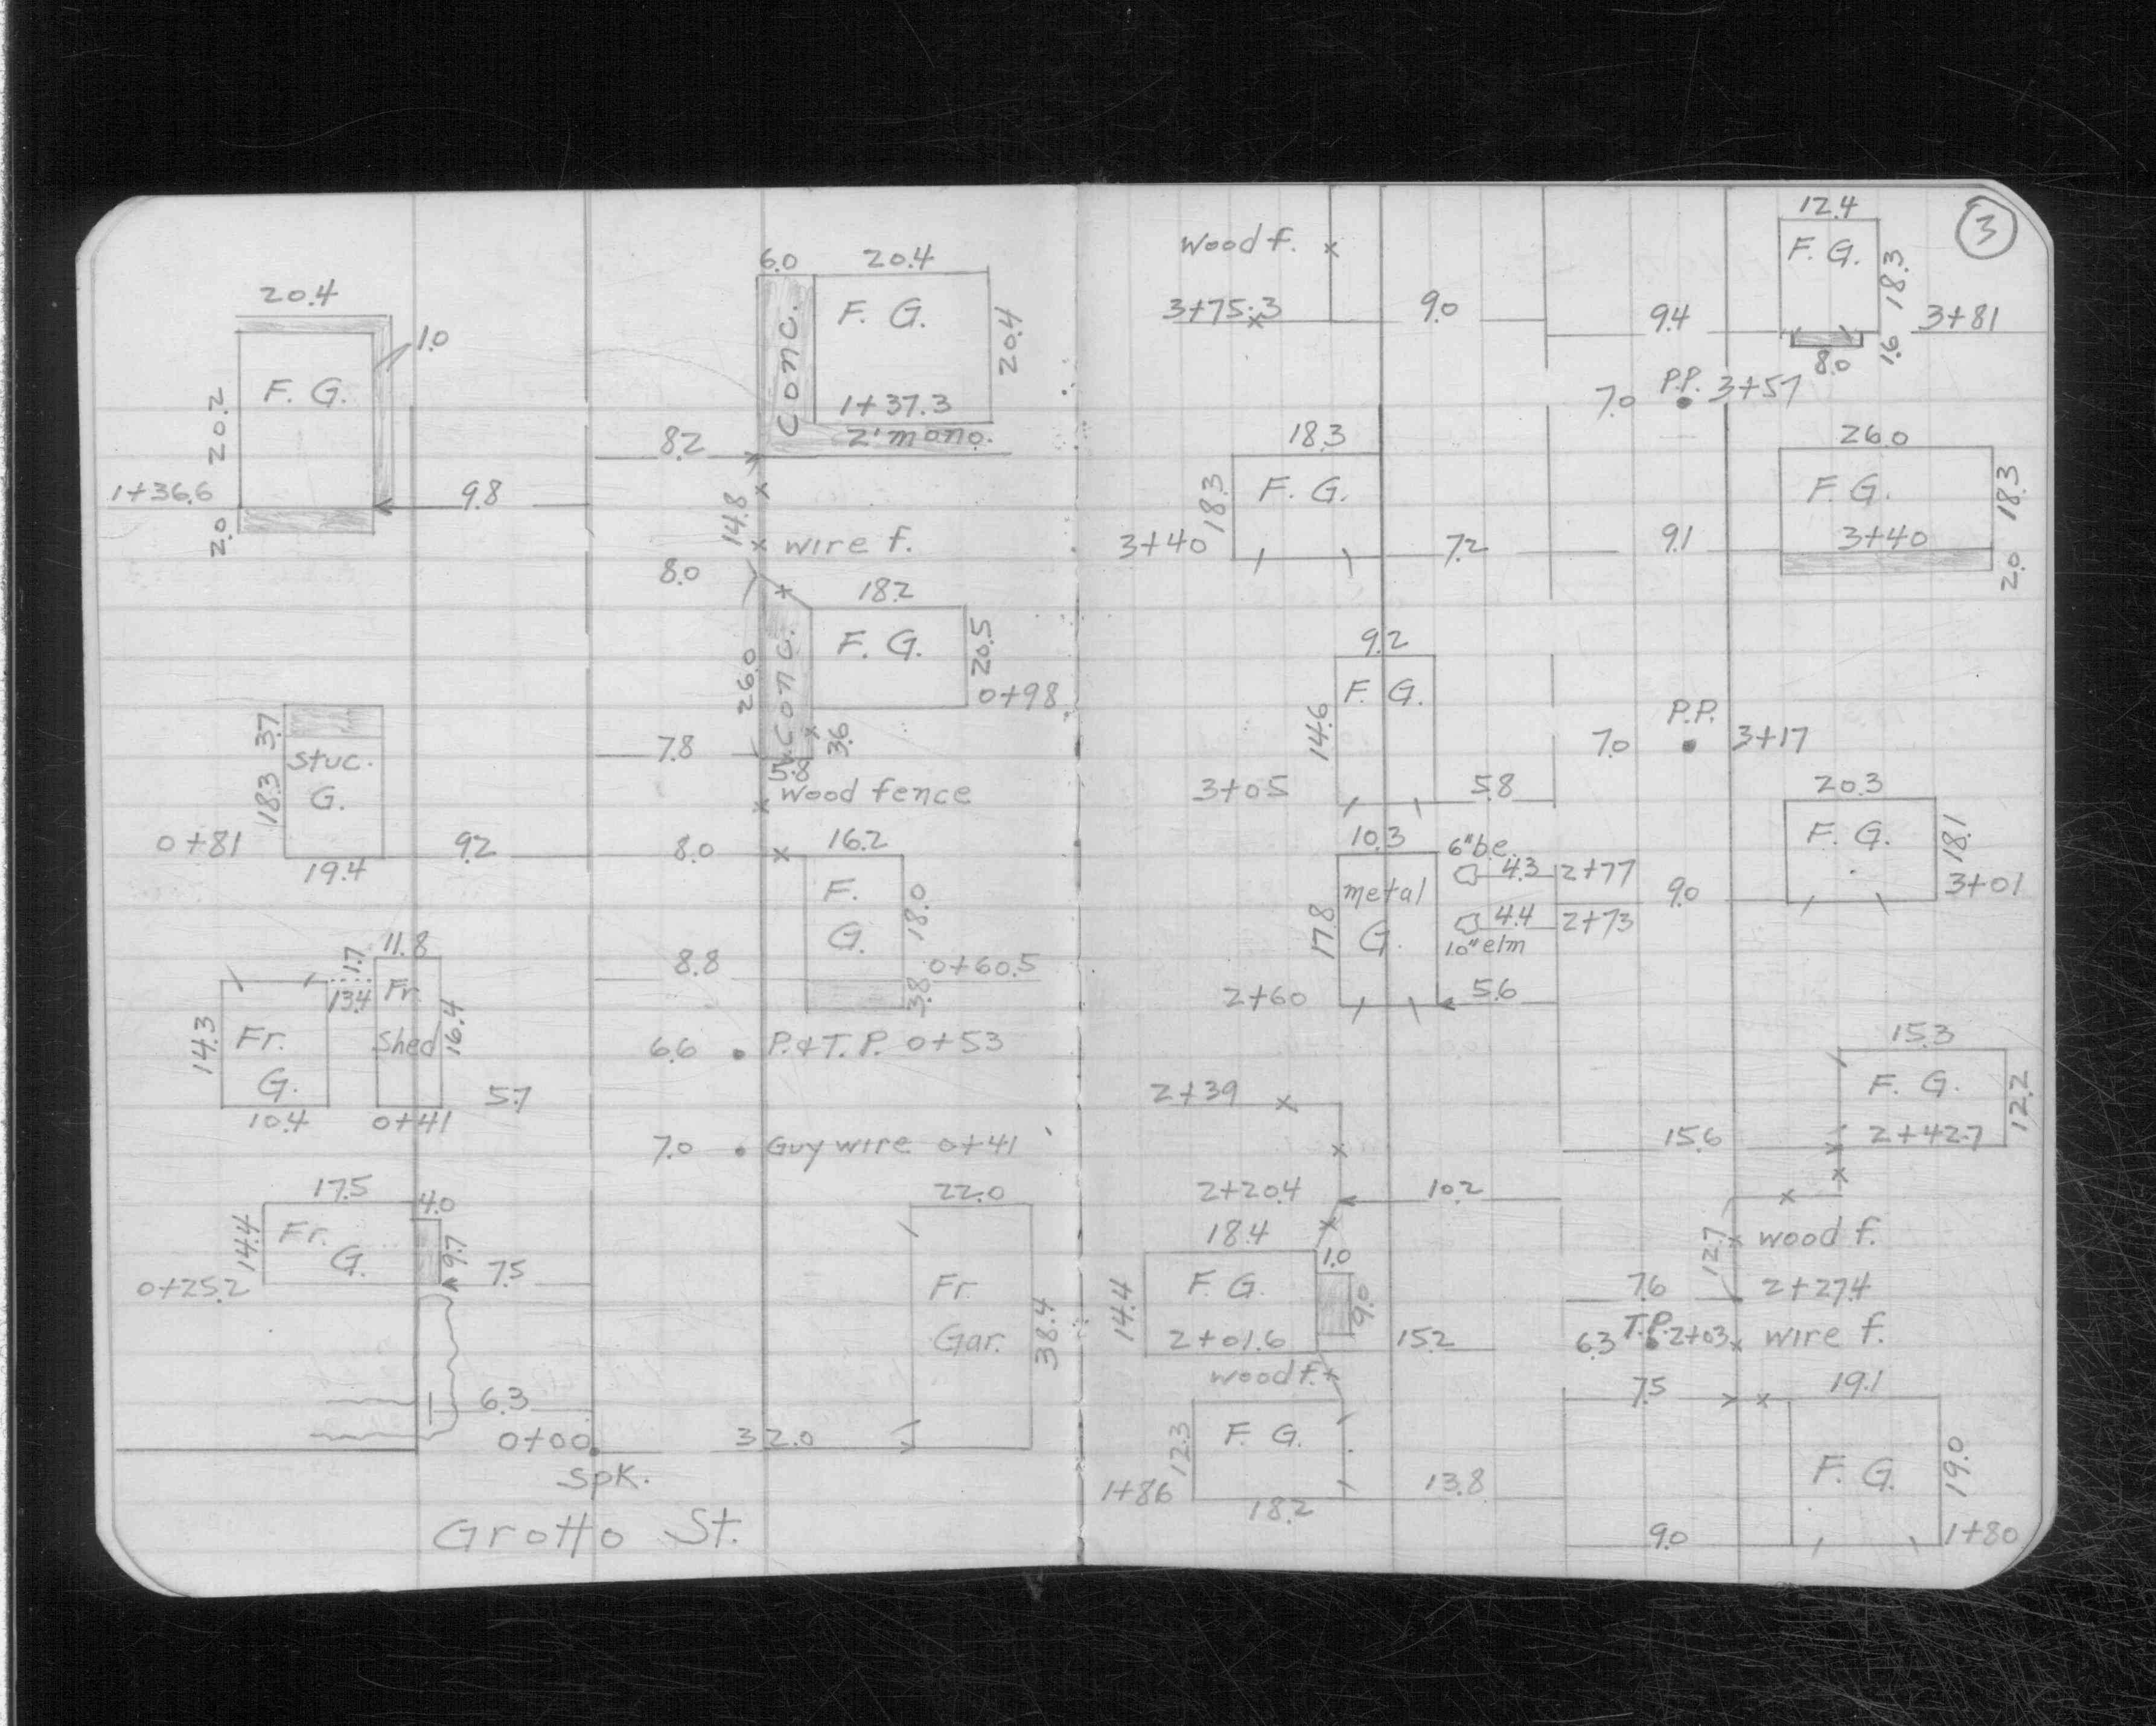 20.4
1.0
F. G.
20.2
1+36.6
9.8
2.0
6.0 20.4
Conc.
F. G.
20.4
1+37.3
2' mono.
8.2
14.8
wire f.
8.0
18.2
Conc.
F. G.
20.5
26.0
0+98
3.6
7.8
5.8
wood fence
3.7
Stuc.
G.
18.3
0+81
9.2
19.4
8.0
16.2
F.
G.
18.0
8.8
0+60.5
3.8
11.8
1.7
13.4
Fr.
Shed
16.4
14.3
Fr.
G.
10.4
0+41
5.7
6.6 P.&T.P. 0+53
7.0 Guy wire 0+41
17.5
4.0
14.4
Fr.
G.
9.7
0+25.2
7.5
22.0
Fr.
Gar.
38.4
6.3
0+00
32.0
Spk.
Grotto St.
3
Wood f.
3+75.3
9.0
9.4
12.4
F. G.
18.3
3+81
8.0
1.6
7.0 P.P. 3+57
18.3
F. G.
18.3
3+40
7.2
9.1
26.0
F. G.
18.3
3+40
2.0
9.2
F. G.
14.6
3+05
5.8
7.0
P.P.
3+17
20.3
F. G.
18.1
3+01
9.0
10.3
metal
G.
17.8
2+60
6" b.e.
4.3 2+77
4.4 2+73
10" elm
5.6
2+39
15.3
F. G.
12.2
2+42.7
15.6
2+20.4
10.2
12.7
wood f.
18.4
F. G.
14.4
1.0
9.0
2+01.6
15.2
7.6
2+27.4
6.3 T.P. 2+03
wire f.
wood f.
F. G.
12.3
1+86
18.2
13.8
7.5
19.1
F. G.
19.0
9.0
1+80